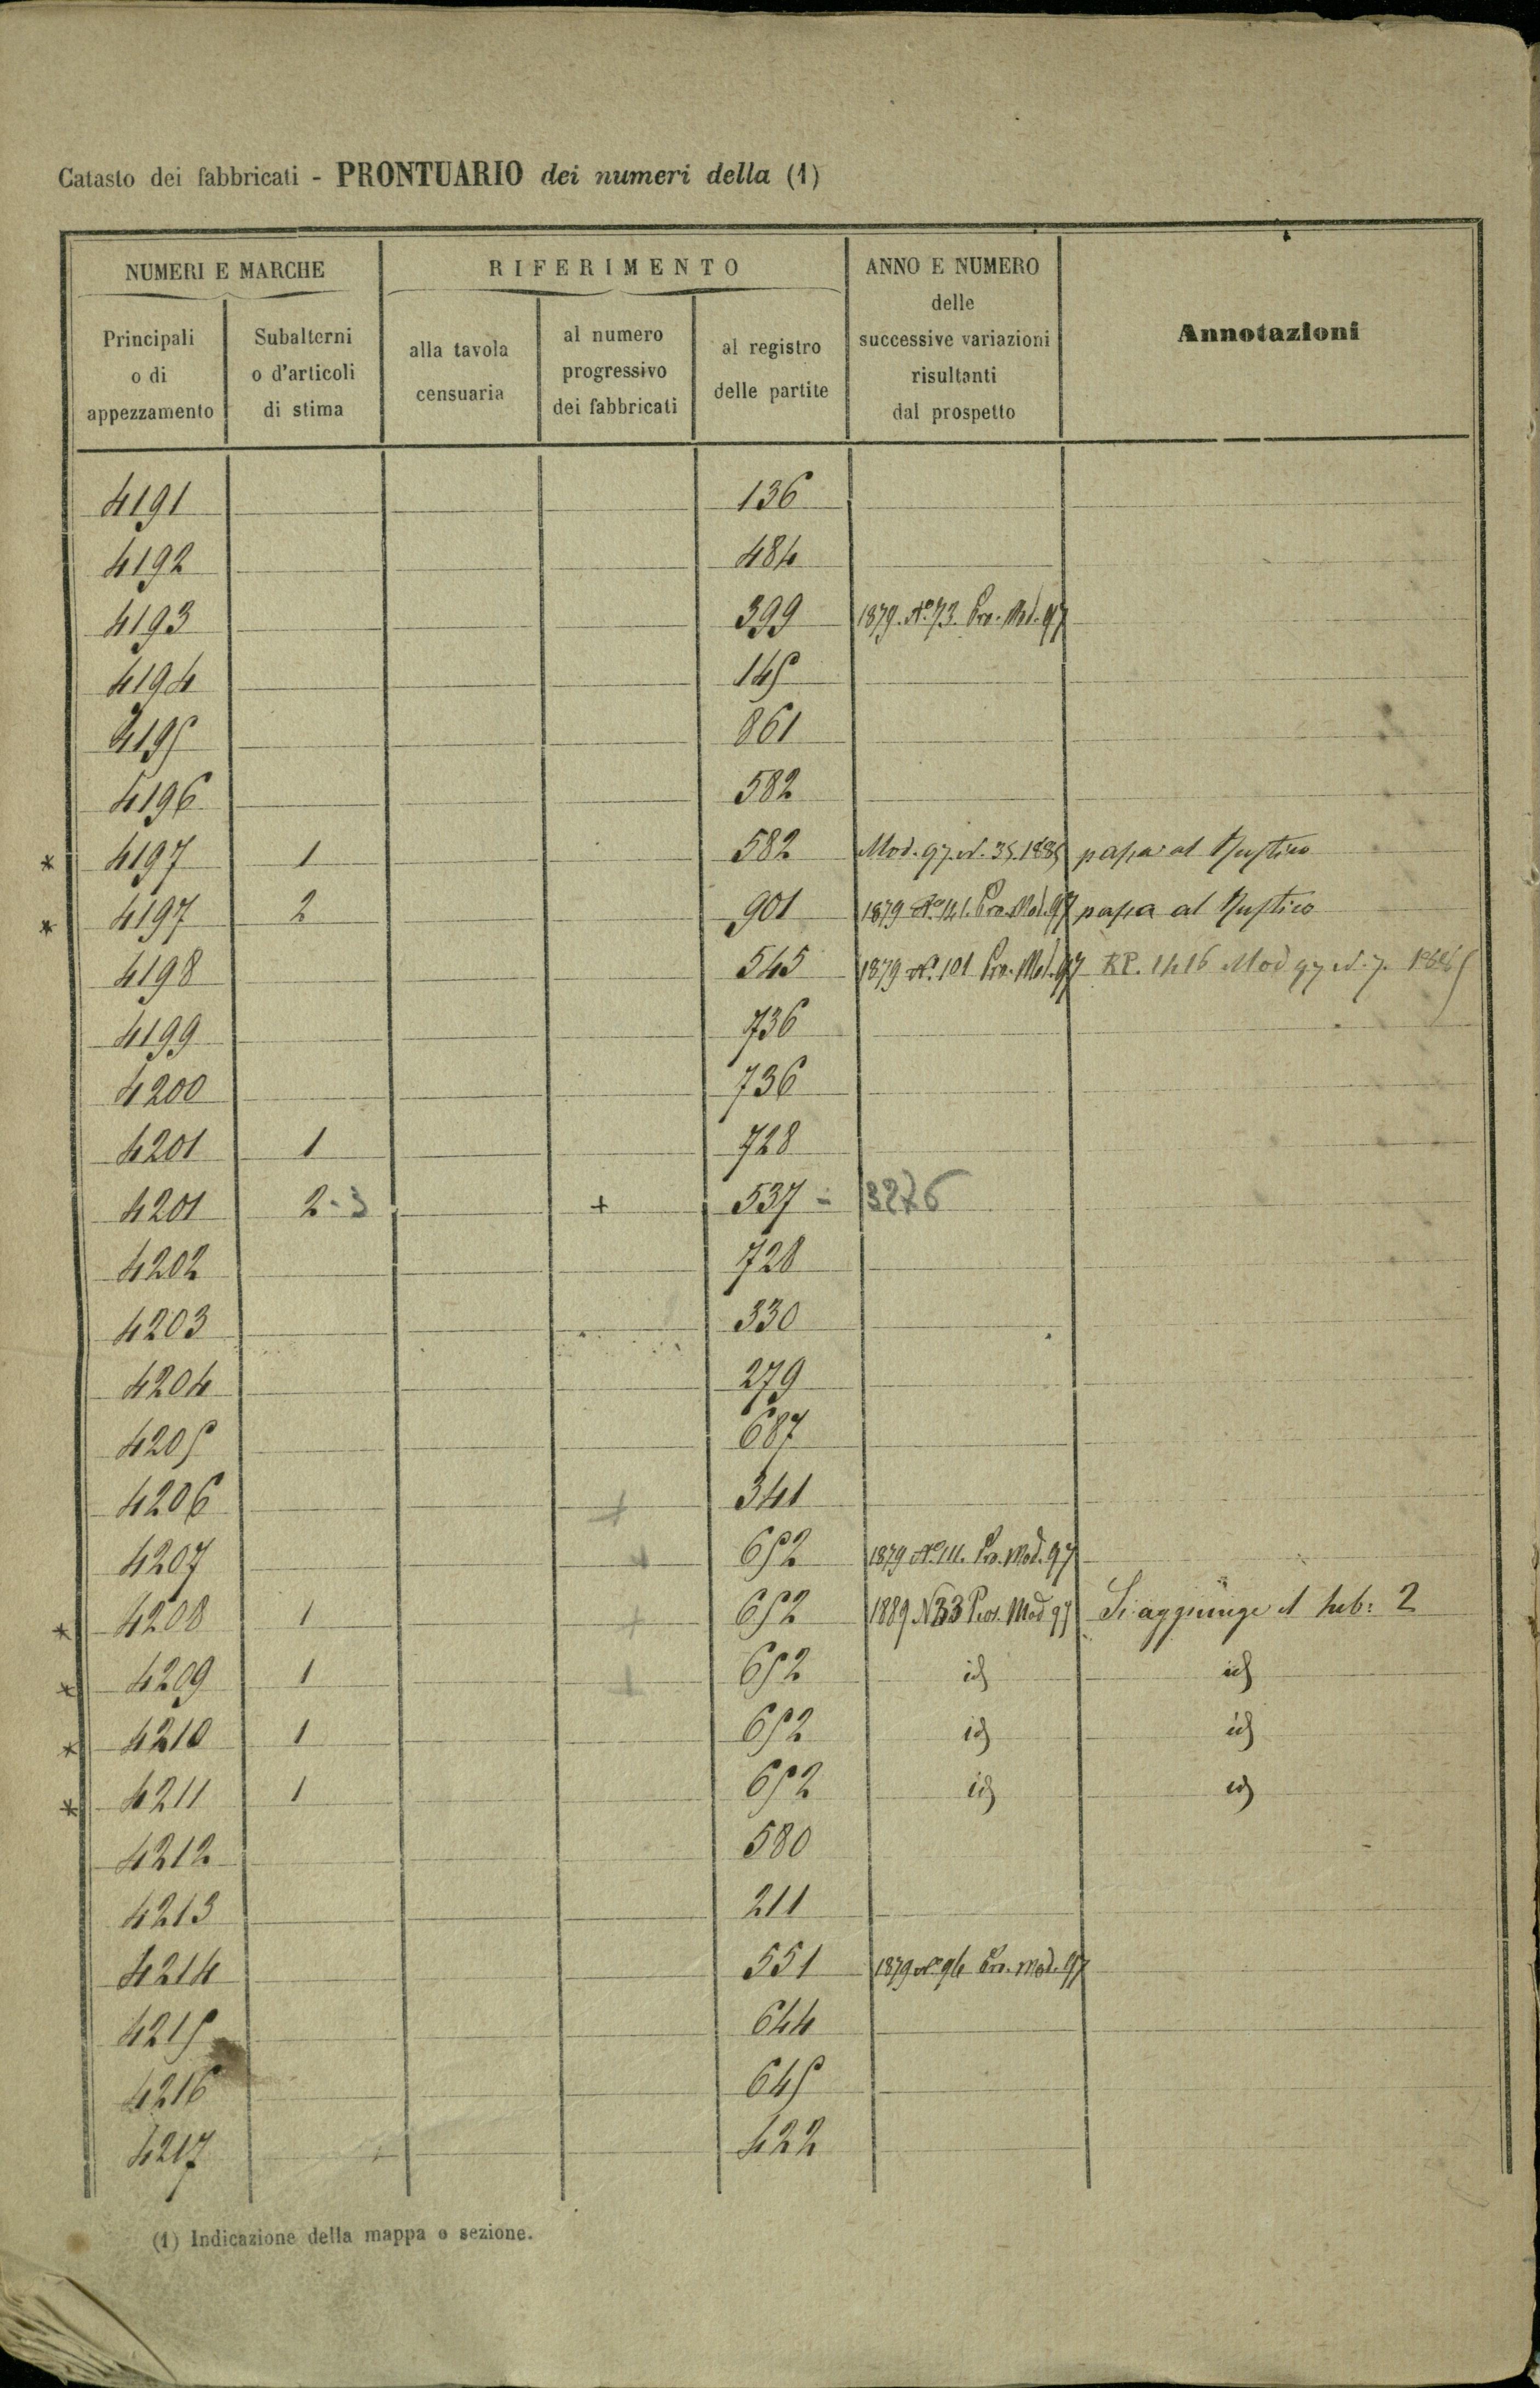 Catasto dei fabbricati - PRONTUARIO dei numeri della (1)
NUMERI E MARCHE
RIFERIMENTO
ANNO E NUMERO
delle
successive variazioni
risultanti
dal prospetto
Annotazioni
Principali
o di
appezzamento
Subalterni
o d'articoli
di stima
alla tavola
censuaria
al numero
progressivo
dei fabbricati
al registro
delle partite
4191 136
4192 484
4193 399 1879. N.° 73. Pro. Mod. 97
4194 145
4195 861
4196 582
* 4197 1 582 Mod. 97. N. 35. 1885 passa al Rustico
* 4197 2 901 1879 N.° 141. Pro. Mod. 97 passa al Rustico
4198 545 1879 N.° 101 Pro. Mod. 97 RP. 1416 Mod 97 N. 7. 1885
4199 736
4200 736
4201 1 728
4201 2-3 + 537 - 3276
4202 728
4203 330
4204 279
4205 687
4206 + 341
4207 + 652 1879 N.° 111. Pro. Mod. 97
* 4208 1 + 652 1889 N 33 Pros. Mod 97 Si aggiunge il sub: 2
* 4209 1 + 652 id id
* 4210 1 652 id id
* 4211 1 652 id id
4212 580
4213 211
4214 551 1879 N.° 96 Pro. Mod. 97
4215 644
4216 645
4217 422
(1) Indicazione della mappa o sezione.